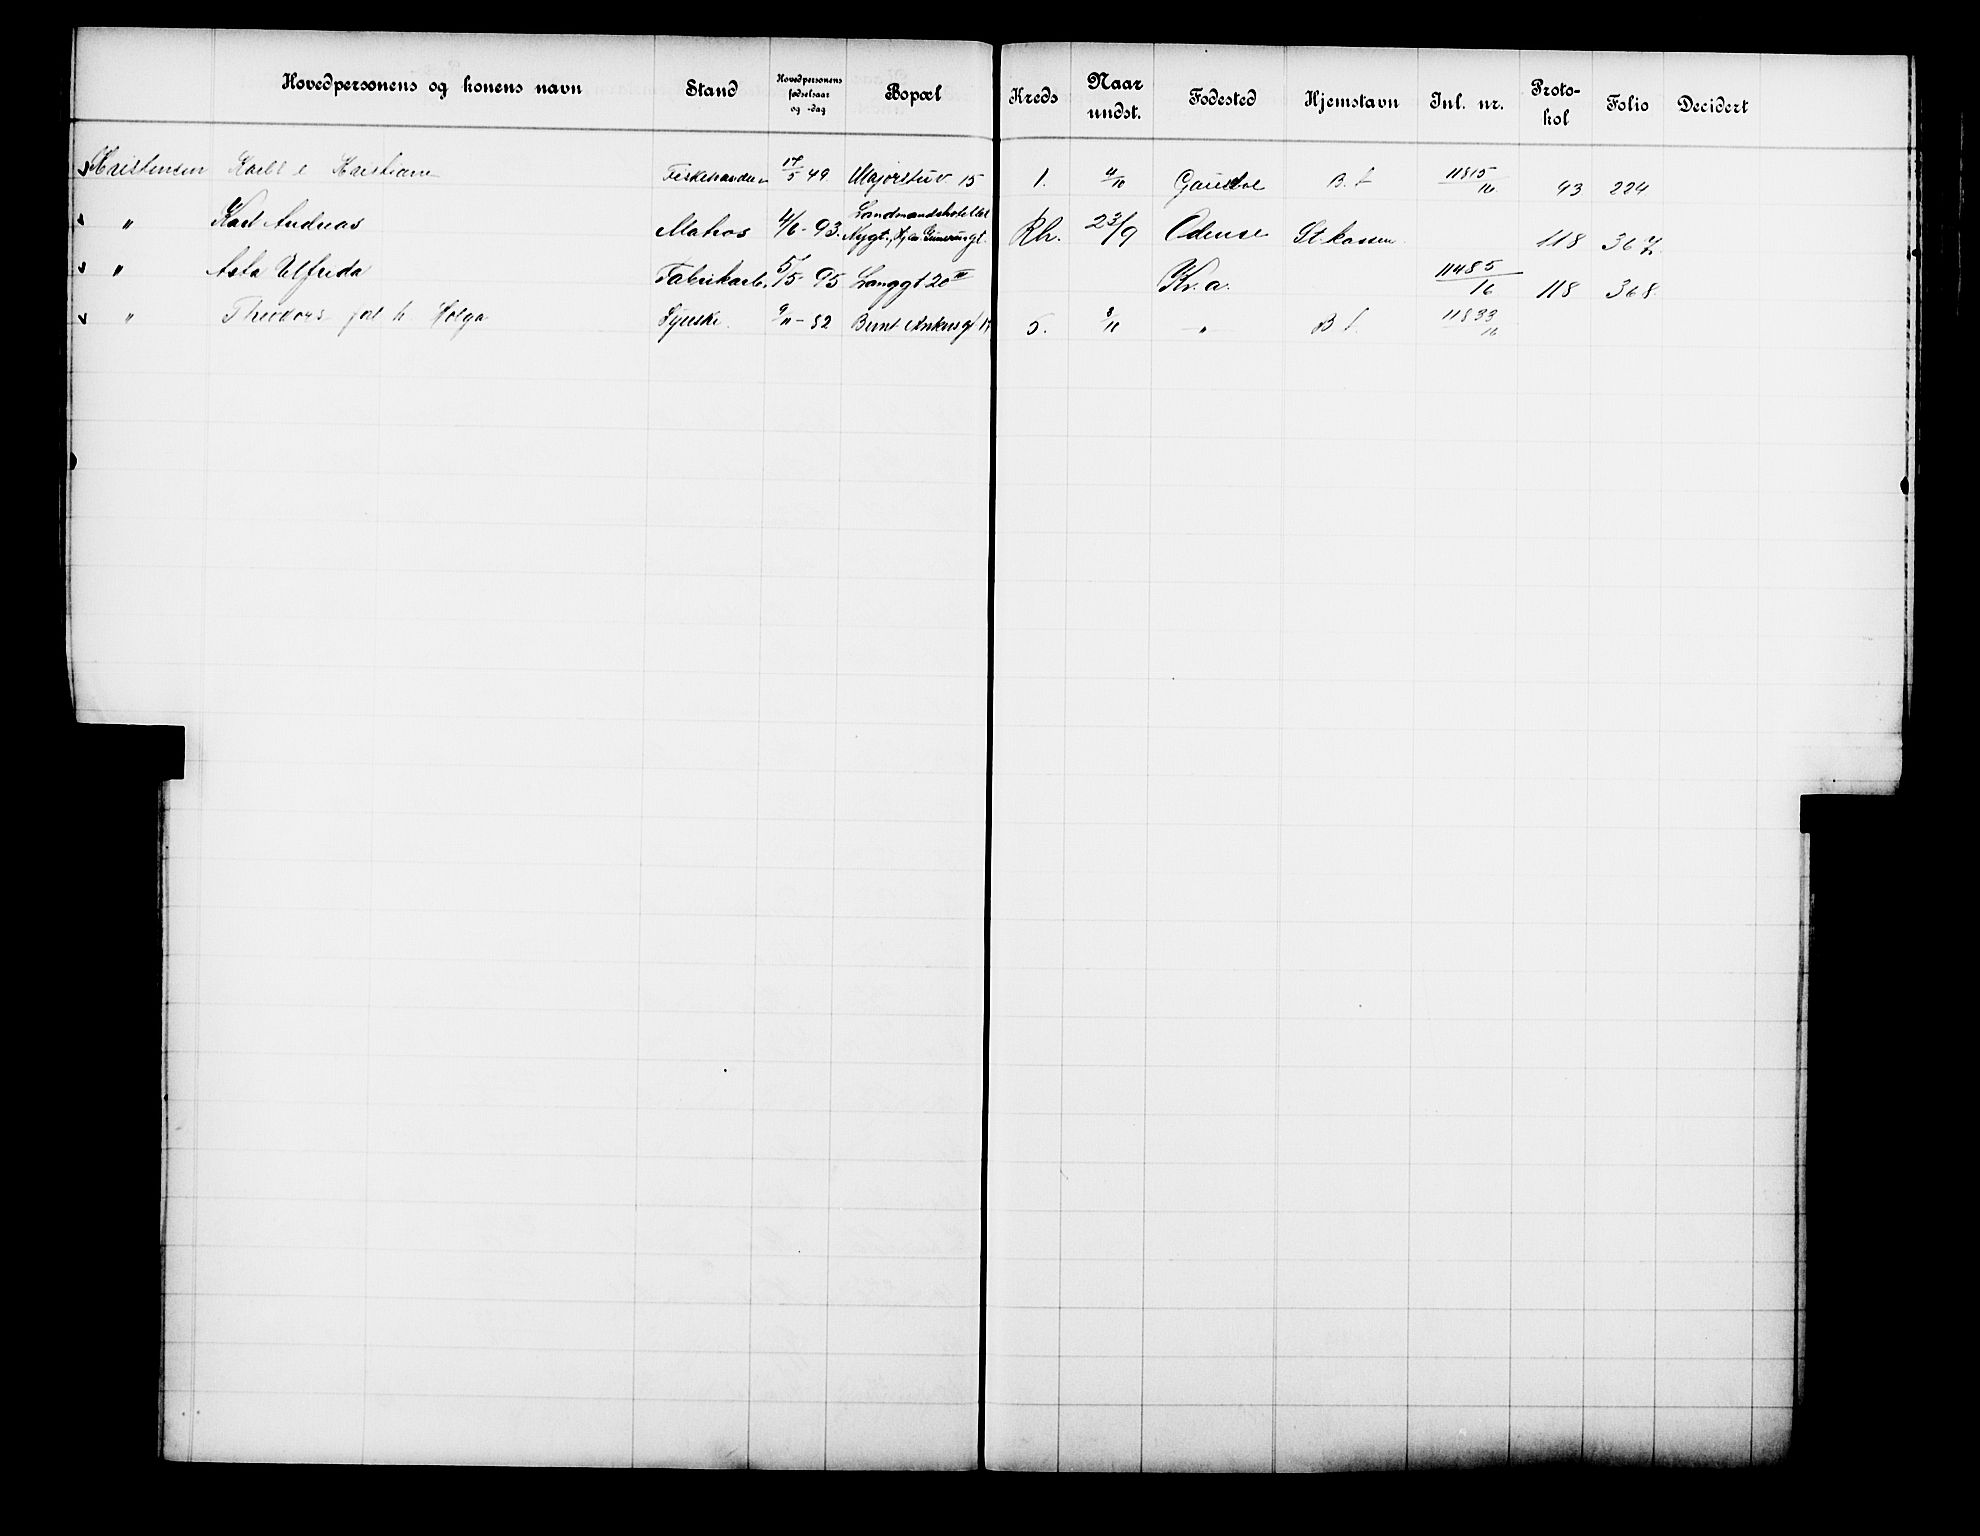 Hovedpersonens og konens navn Stand Hovedpersonens fødselsaar og -dag Bopæl Kreds Naar undst. Fødested Hjemstavn Inl. nr. Protokol Folio Decidert
Kristensen Karl e Kristiane 17/5 49 Majorstuv 15 1. 4/10 B. f 11815/16 93 224
" Karl Andreas Matros 4/6 - 93. Landmandshotellet Nygt. Rh. 23/9 Odense St kassen. 118 367.
" Asta Elfrida Fabrikarb. 5/5- 95 Langgt 20 III Kr.a. 11485/16 118 368.
" Theodora Helga Syerske. 9/11 - 82 Bernt Ankersgt 17 5. 3/11 " B f. 11833/16